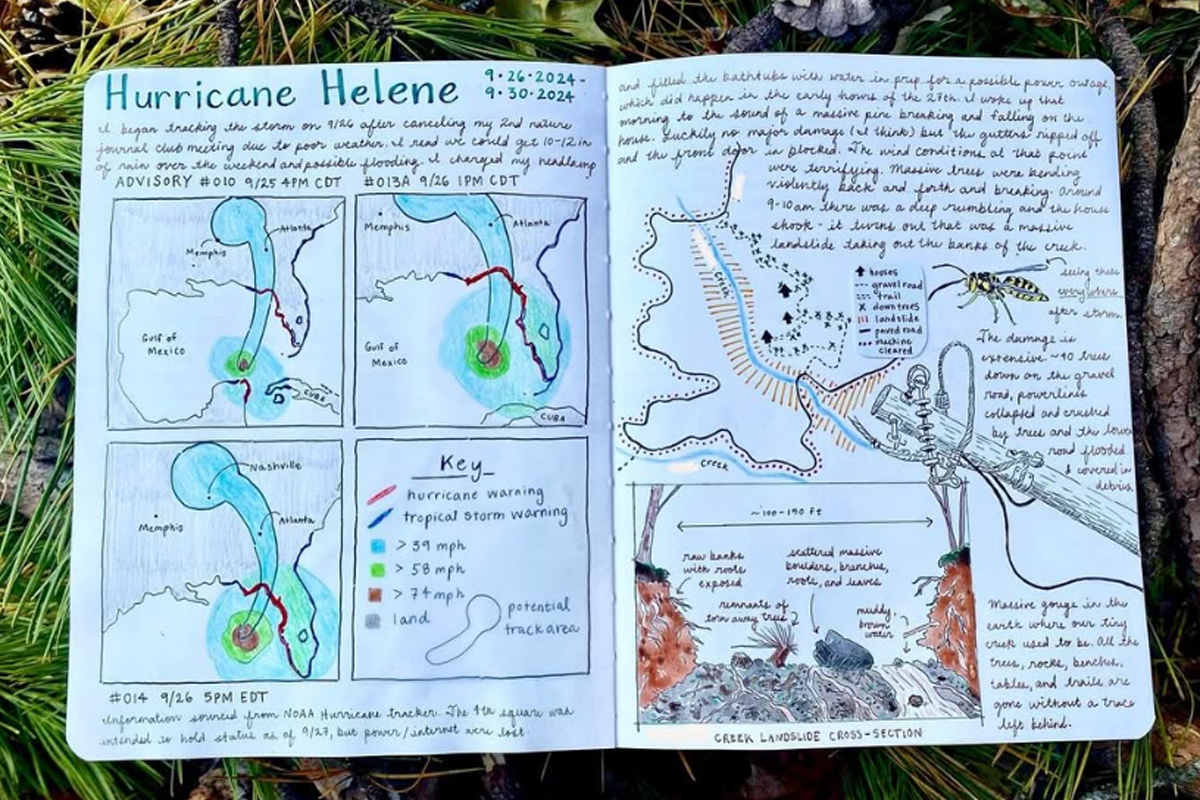 Hurricane Helene
9.26.2024-
9.30.2024
I began tracking the storm on 9/26 after canceling my 2nd nature
journal club meeting due to poor weather. I read we could get 10-12 in
of rain over the weekend and possible flooding. I charged my headlamp
ADVISORY #010 9/25 4PM CDT
#013A 9/26 1PM CDT
Atlanta
Memphis
Gulf of
Mexico
CUBA
Memphis
Atlanta
Gulf of
Mexico
CUBA
Nashville
Memphis
Atlanta
Key
hurricane warning
tropical storm warning
> 39 mph
> 58 mph
> 74 mph
land
potential
track area
#014 9/26 5PM EDT
Information sourced from NOAA Hurricane tracker. The 4th square was
intended to hold status as of 9/27, but power/internet were lost.
and filled the bathtubs with water in prep for a possible power outage,
which did happen in the early hours of the 27th. I woke up that
morning to the sound of a massive pine breaking and falling on the
house. Luckily no major damage (I think) but the gutters ripped off
and the front door in blocked. The wind conditions at that point
were terrifying. Massive trees were bending
violently back and forth and breaking. Around
9-10am there was a deep rumbling and the house
shook - it turns out that was a massive
landslide taking out the banks of the creek.
Creek
houses
gravel road
trail
down trees
landslide
paved road
machine
cleared
seeing these
everywhere
after storm.
The damage is
extensive. ~40 trees
down on the gravel
road, powerlines
collapsed and crushed
by trees and the lower
road flooded
& covered in
debris.
Creek
~100-150 ft
raw banks
with roots
exposed
scattered massive
boulders, branches,
roots, and leaves
remnants of
torn away trees
muddy,
brown
water
Massive gouge in the
earth where our tiny
creek used to be. All the
trees, rocks, benches,
tables, and trails are
gone without a trace
left behind.
CREEK LANDSLIDE CROSS-SECTION